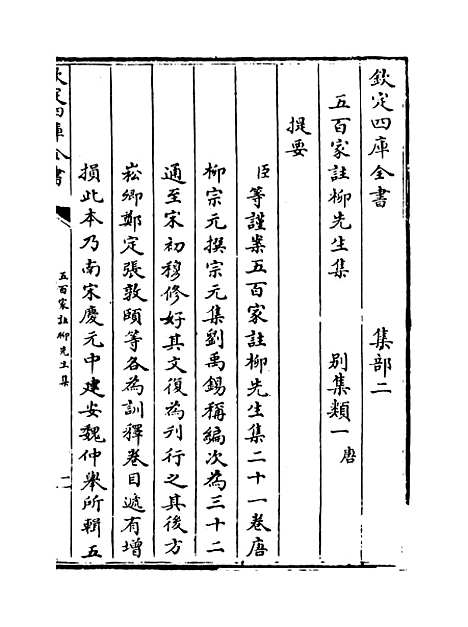 欽定四庫全書 集部二
五百家註柳先生集 別集類一 唐
提要
臣等謹案五百家註柳先生集二十一卷唐
柳宗元撰宗元集劉禹錫稱編次為三十二
通至宋初穆修好其文復為刋行之其後方
崧卿鄭定張敦頤等各為訓釋卷目遞有增
損此本乃南宋慶元中建安魏仲舉所輯五
欽定四庫全書
五百家註柳先生集